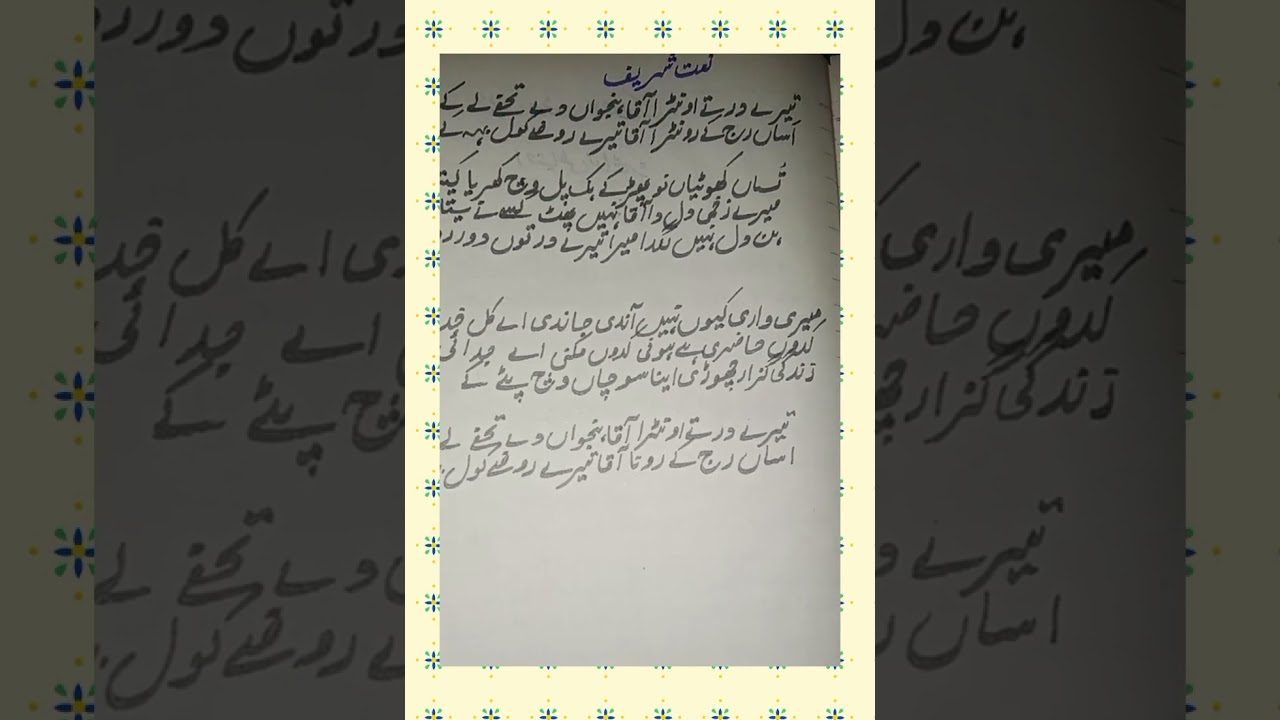 نعت شریف
تیرے در تے اونٹرا آقا، ہنجواں دے تحفے لے کے
اساں رج کے رونٹرا آقا تیرے روضے کول بہہ کے
تساں کھوٹیاں نو پھڑ کے ہک پل وچ کھریا کیتا
میرے زخمی دل دا آقا نہیں پھٹ کسے نے سیتا
ہن دل نہیں لگدا میرا تیرے در توں دور
میری واری کیوں نہیں آندی جاندی اے کل
کدوں حاضری ہے ہونی کدوں مکنی اے جدائی
زندگی گزار چھوڑی ایناں سوچاں وچ پئے کے
تیرے در تے اونٹرا آقا، ہنجواں دے تحفے لے
اساں رج کے رونا آقا تیرے روضے کول